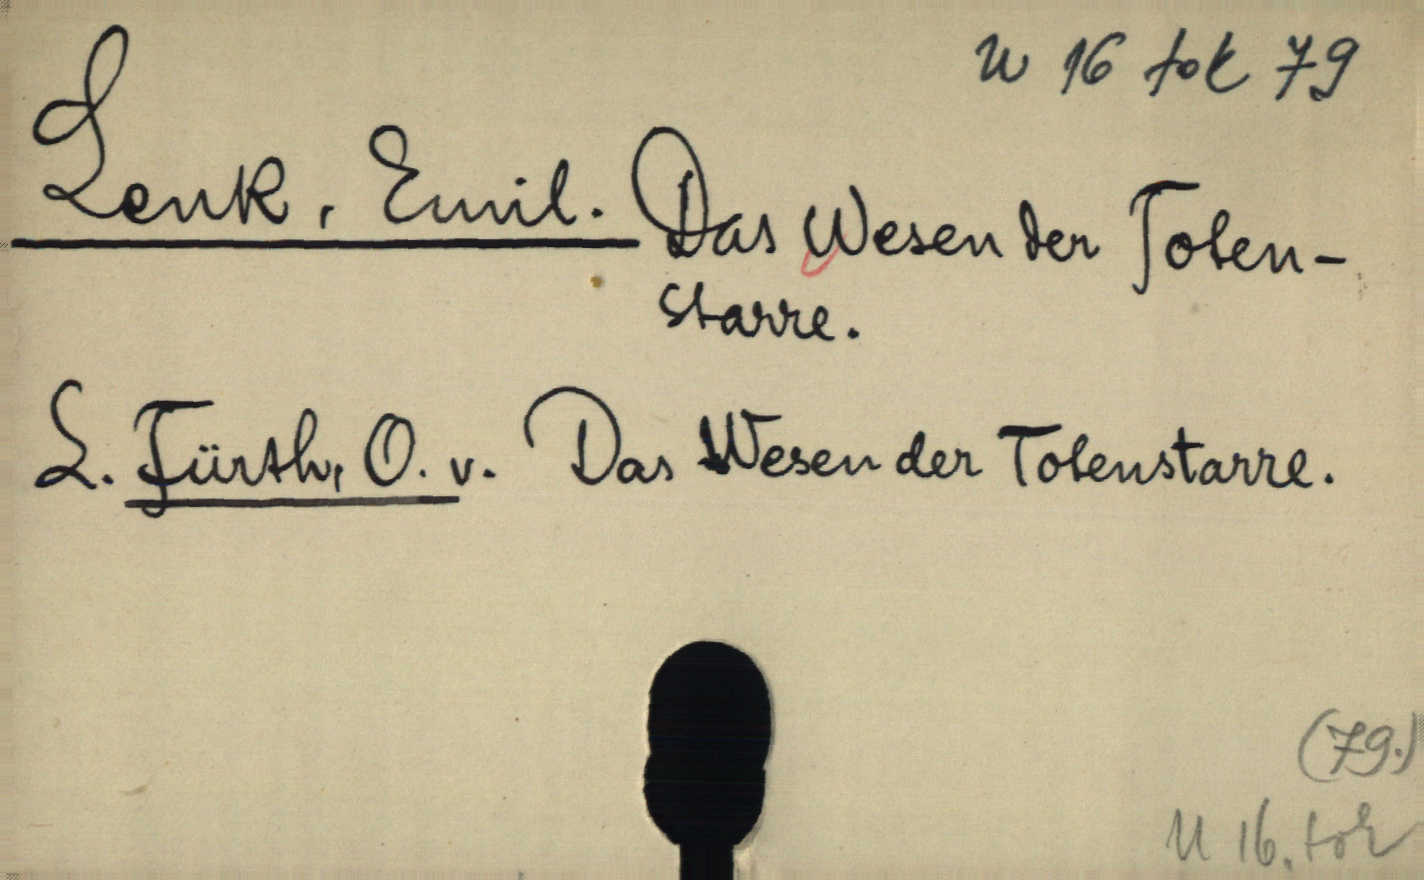 U 16 tok 79
Lenk, Emil. Das Wesen der Toten-
starre.
S. Fürth, O. v. Das Wesen der Totenstarre.
(79.)
U 16. tok